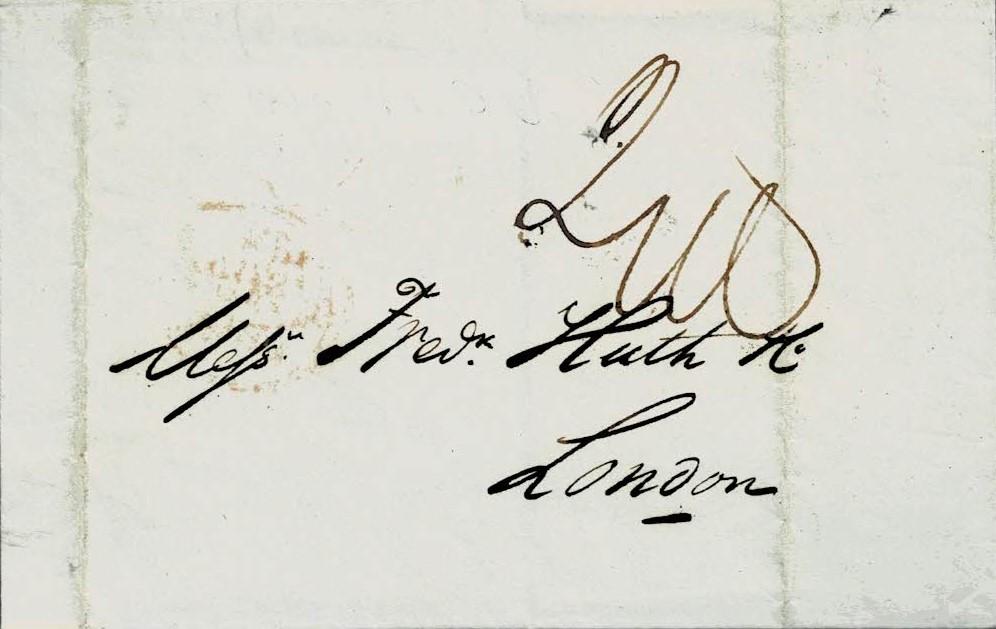 Messrs. Fredk. Huth &c.
London